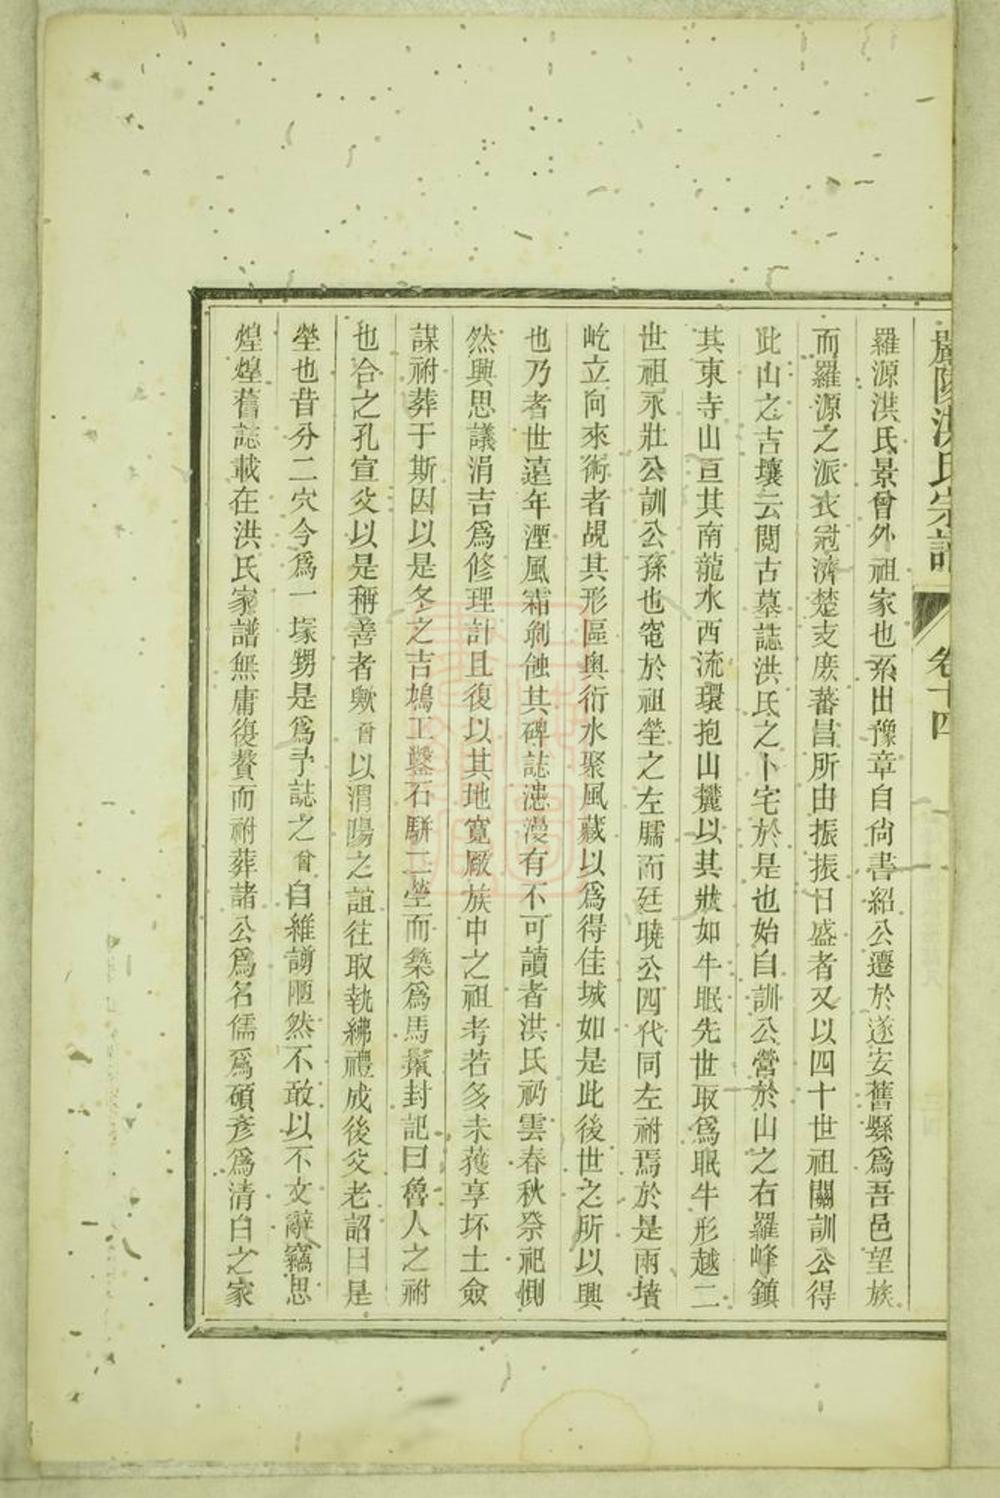 嚴陵洪氏宗譜 卷十四
羅源洪氏景曾外祖家也系出豫章自尙書紹公遷於遂安舊縣爲吾邑望族
而羅源之派衣冠濟楚支庶蕃昌所由振振日盛者又以四十世祖關訓公得
此山之吉壤云閱古墓誌洪氏之卜宅於是也始自訓公營於山之右羅峰鎮
其東寺山亘其南龍水西流環抱山麓以其狀如牛眠先世取爲眠牛形越二
世祖永壯公訓公孫也窀於祖塋之左臑而廷曉公四代同左祔焉於是兩墳
屹立向來術者覘其形區輿衍水聚風藏以爲得佳城如是此後世之所以興
也乃者世遠年湮風霜剝蝕其碑誌漶漫有不可讀者洪氏礽雲春秋祭祀惻
然興思議涓吉爲修理計且復以其地寬厰族中之祖考若多未獲享坏土僉
謀祔葬于斯因以是冬之吉鳩工鑿石駢二塋而築爲馬鬣封記曰魯人之祔
也合之孔宣父以是稱善者歟曾以渭陽之誼往取執紼禮成後父老詔曰是
塋也昔分二穴今爲一塚甥是爲予誌之曾自維謭陋然不敢以不文辭竊思
煌煌舊誌載在洪氏家譜無庸復贅而祔葬諸公爲名儒爲碩彦爲清白之家